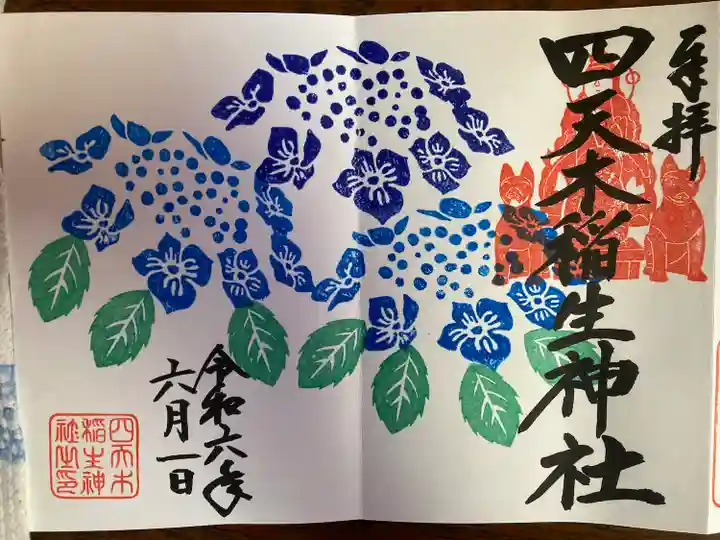 奉拝
四天木稲生神社
令和六年
六月一日
四天木
稲生神
社之印